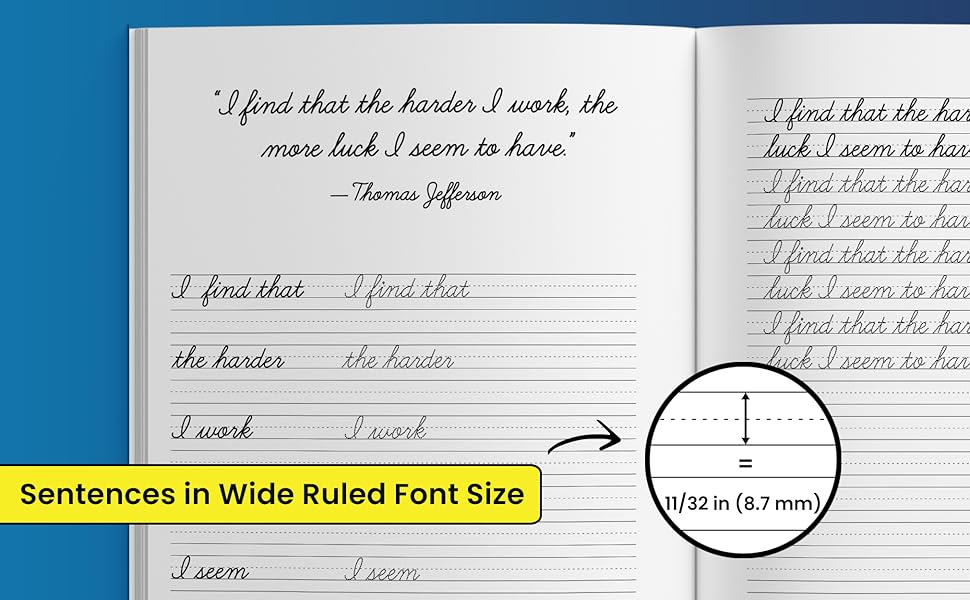 “I find that the harder I work, the
more luck I seem to have.”
—Thomas Jefferson
I find that I find that
the harder the harder
I work I work
I seem I seem
I find that the har
luck I seem to hav
I find that the har
luck I seem to hav
I find that the har
luck I seem to hav
I find that the har
luck I seem to hav
Sentences in Wide Ruled Font Size
=
11/32 in (8.7 mm)